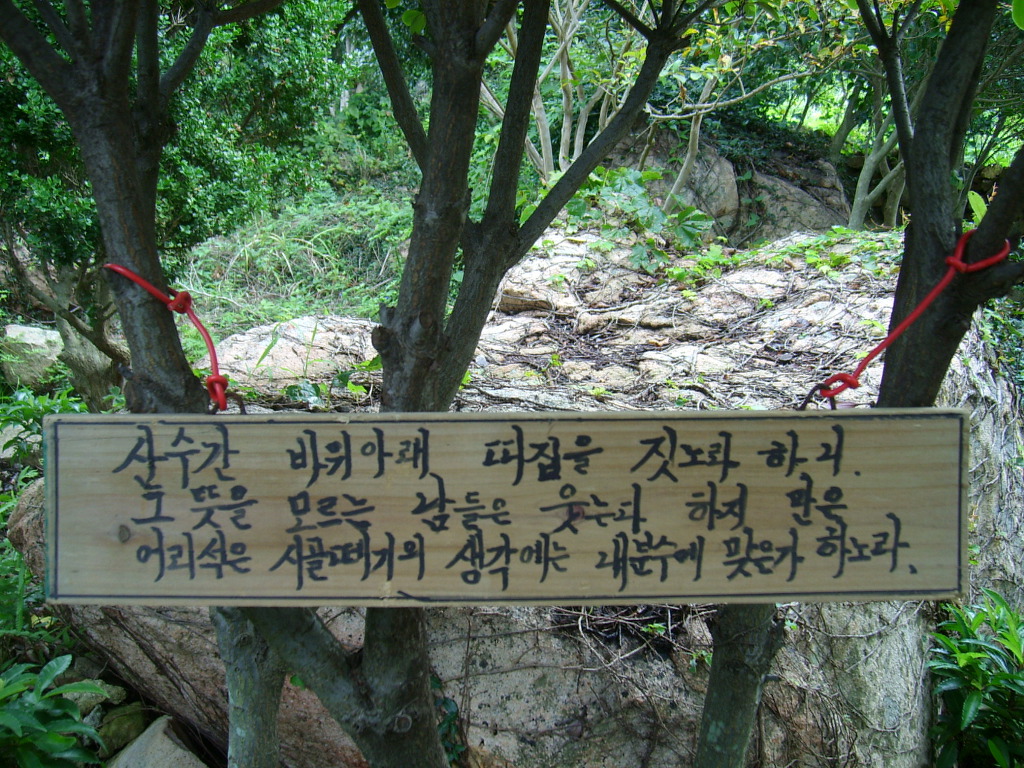 산수간 바위아래 띠집을 짓노라 하니.
그 뜻을 모르는 남들은 웃는다 하지 만은
어리석은 시골떼기의 생각에는 내분수에 맞은가 하노라.